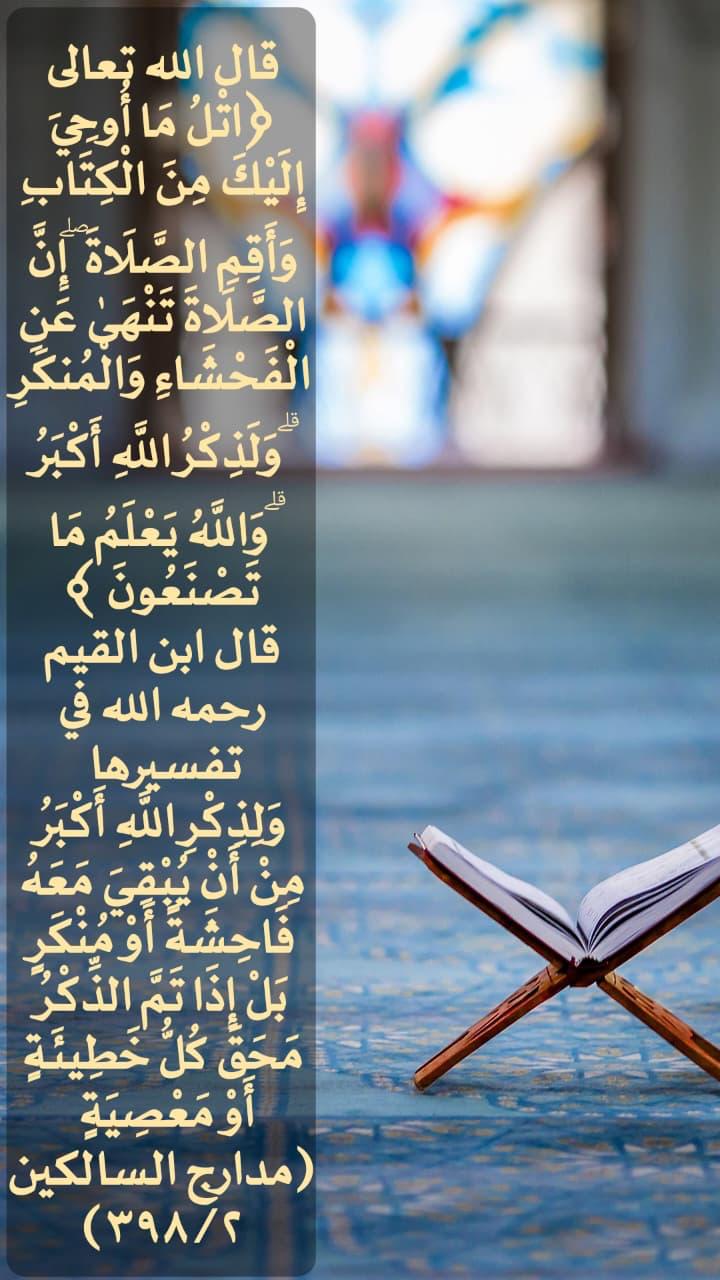 قال الله تعالى
﴿اتْلُ مَا أُوحِيَ
إِلَيْكَ مِنَ الْكِتَابِ
وَأَقِمِ الصَّلَاةَ ۖ إِنَّ
الصَّلَاةَ تَنْهَىٰ عَنِ
الْفَحْشَاءِ وَالْمُنكَرِ
ۗ وَلَذِكْرُ اللَّهِ أَكْبَرُ
ۗ وَاللَّهُ يَعْلَمُ مَا
تَصْنَعُونَ ﴾
قال ابن القيم
رحمه الله في
تفسيرها
وَلِذِكْرِ اللَّهِ أَكْبَرُ
مِنْ أَنْ يُبْقِيَ مَعَهُ
فَاحِشَةً أَوْ مُنْكَرٍ
بَلْ إِذَا تَمَّ الذِّكْرُ
مَحَقَ كُلُّ خَطِيئَةٍ
أَوْ مَعْصِيَةٍ
(مدارج السالكين
٣٩٨/٢)